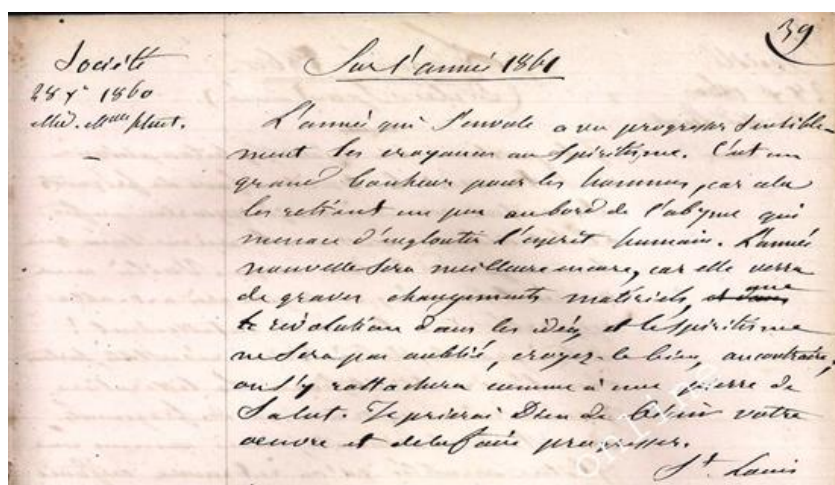 39
Société
28 Xe 1860
Méd. Mme
Sur l'année 1861
L'année qui s'envole a vu progresser sensible-
ment les croyances au Spiritisme. C'est un
grand bonheur pour les hommes, car cela
les retient un peu au bord de l'abyme qui
menace d'engloutir l'esprit humain. L'année
nouvelle sera meilleure encore, car elle verra
de graves changements matériels, et dans que
le révolution dans les idées, et le spiritisme
ne sera pas oublié, croyez-le bien, au contraire;
on s'y rattachera comme à une pierre de
Salut. Je prierai Dieu de bénir votre
oeuvre et de la faire progresser.
St. Louis